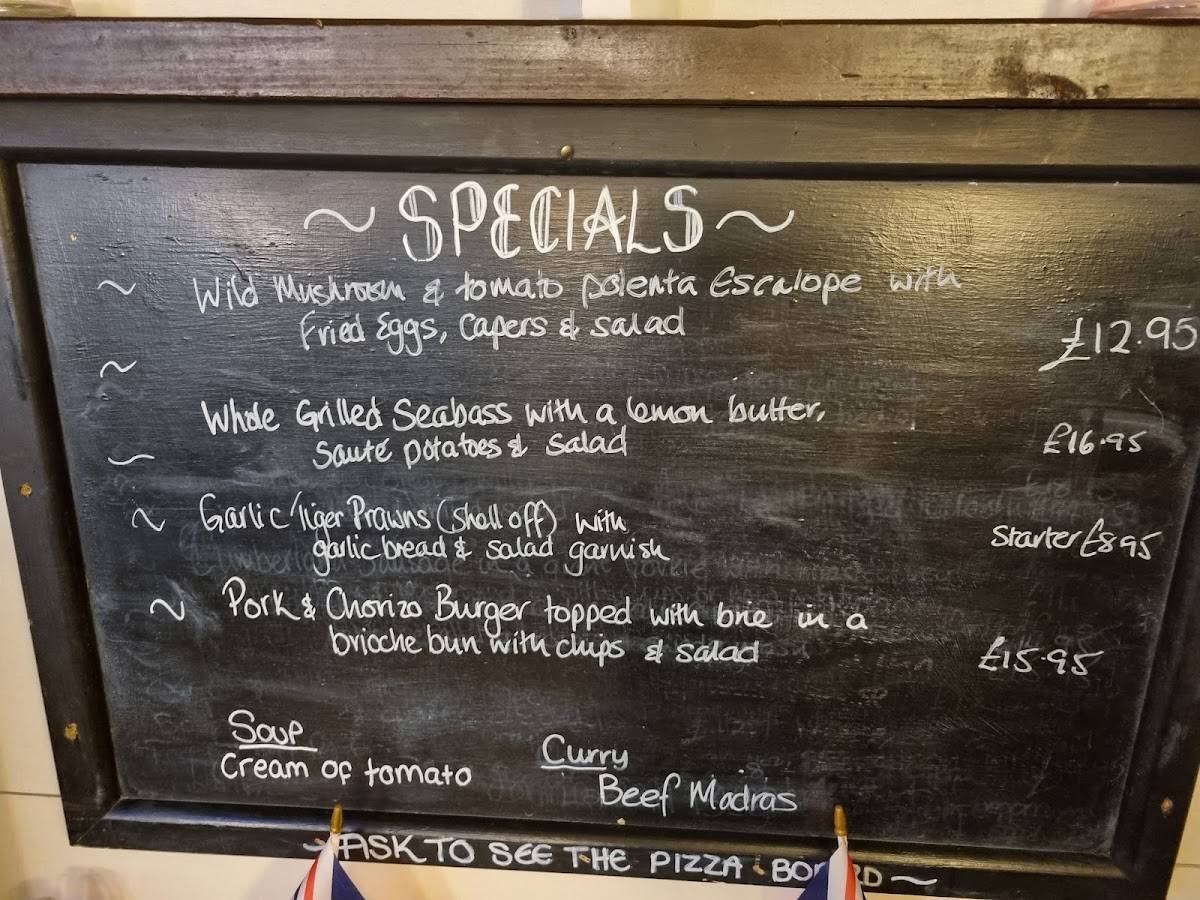 ~ SPECIALS ~
~ Wild Mushroom & tomato polenta Escalope with
Fried Eggs, Capers & Salad £12.95
~
Whole Grilled Seabass with a lemon butter,
Sauté potatoes & Salad £16.95
~
~ Garlic Tiger Prawns (Shell off) with
garlic bread & salad garnish Starter £8.95
~ Pork & Chorizo Burger topped with brie in a
brioche bun with chips & salad £15.95
Soup
Cream of tomato
Curry
Beef Madras
~ ASK TO SEE THE PIZZA BOARD ~